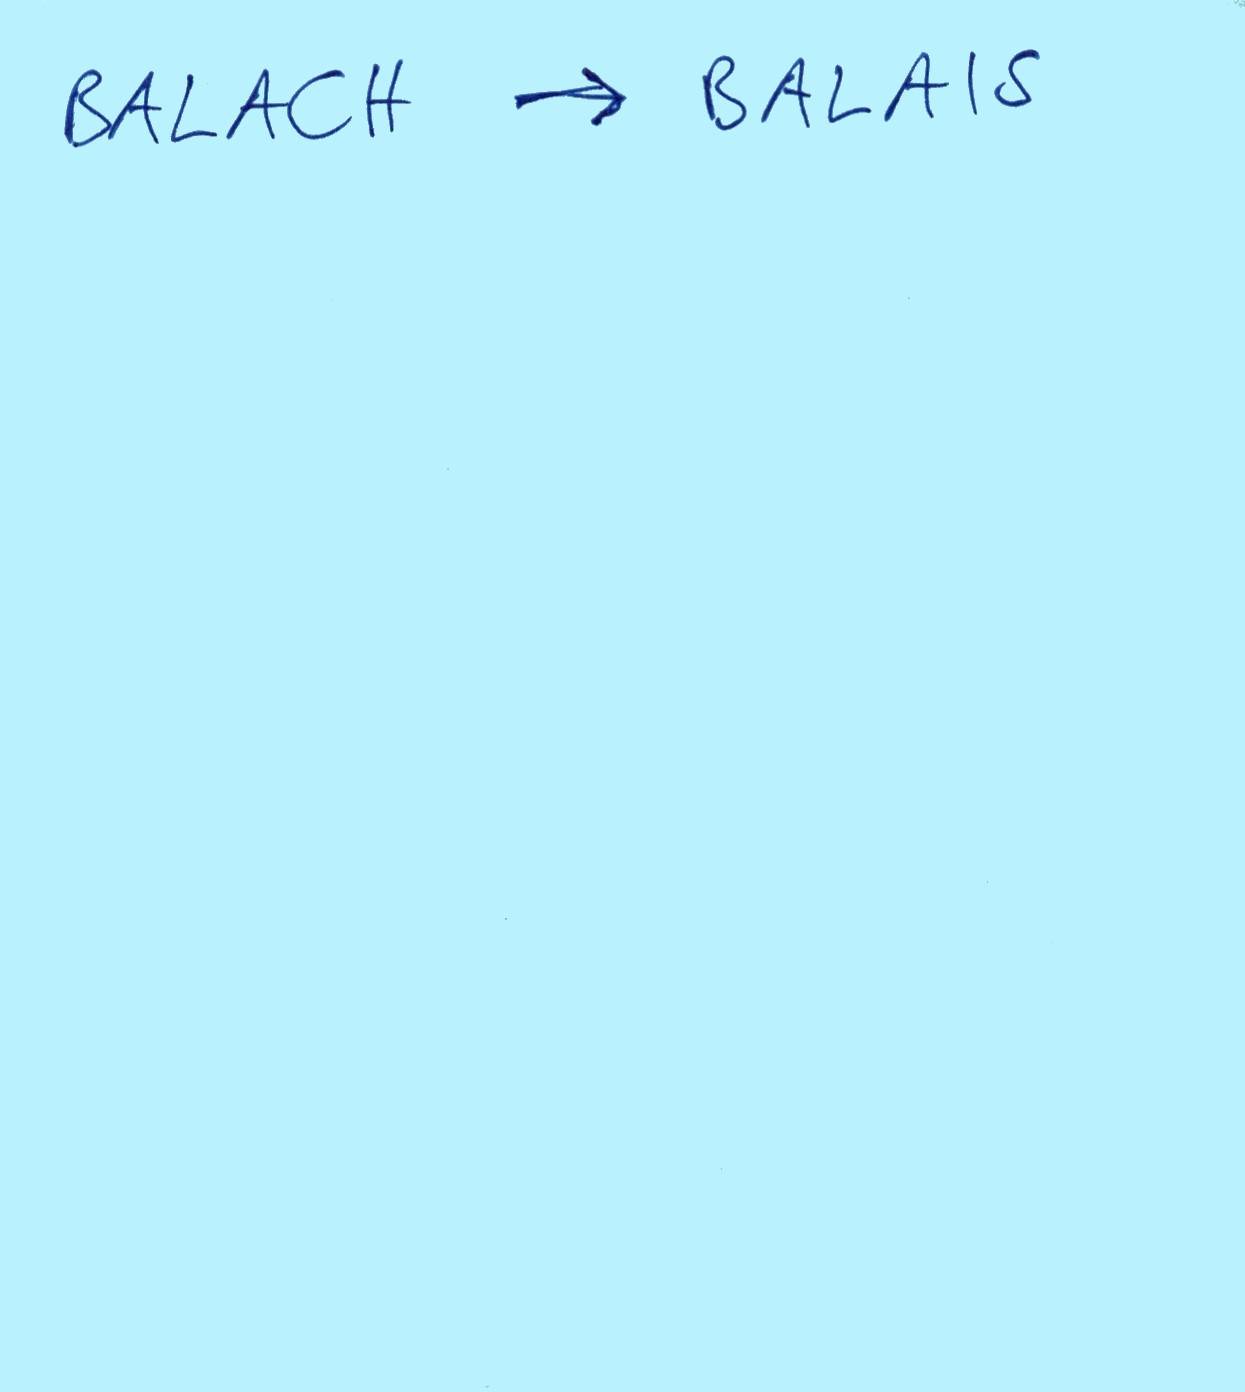 BALACH → BALAIS